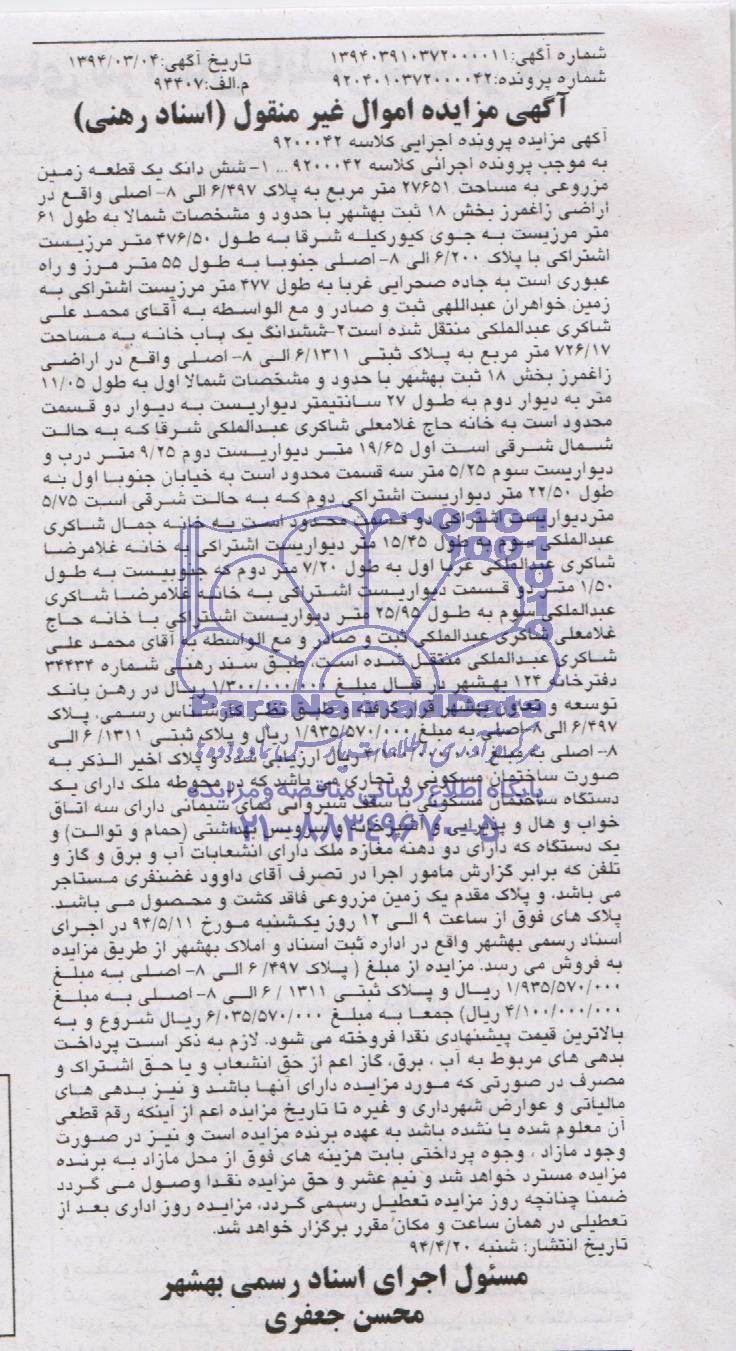 شماره آگهی:۱۳۹۴۰۳۹۱۰۳۷۲۰۰۰۰۱۱ تاریخ آگهی:۱۳۹۴/۰۳/۰۴
شماره پرونده:۹۲۰۴۰۱۰۳۷۲۰۰۰۰۴۲ م.الف:۹۴۴۰۷
آگهی مزایده اموال غیر منقول (اسناد رهنی)
آگهی مزایده پرونده اجرایی کلاسه ۹۲۰۰۰۴۲
به موجب پرونده اجرائی کلاسه ۹۲۰۰۰۴۲ ... ۱-شش دانگ یک قطعه زمین
مزروعی به مساحت ۲۷۶۵۱ متر مربع به پلاک ۶/۴۹۷ الی ۸- اصلی واقع در
اراضی زاغمرز بخش ۱۸ ثبت بهشهر با حدود و مشخصات شمالا به طول ۶۱
متر مرزیست به جوی کیورکیله شرقا به طول ۴۷۶/۵۰ متر مرزیست
اشتراکی با پلاک ۶/۲۰۰ الی ۸-اصلی جنوبا به طول ۵۵ متر مرز و راه
عبوری است به جاده صحرایی غربا به طول ۴۷۷ متر مرزیست اشتراکی به
زمین خواهران عبداللهی ثبت و صادر و مع الواسطه به آقای محمد علی
شاکری عبدالملکی منتقل شده است۲-ششدانگ یک باب خانه به مساحت
۷۲۶/۱۷ متر مربع به پلاک ثبتی ۶/۱۳۱۱ الی ۸- اصلی واقع در اراضی
زاغمرز بخش ۱۸ ثبت بهشهر با حدود و مشخصات شمالا اول به طول ۱۱/۰۵
متر به دیوار دوم به طول ۲۷ سانتیمتر دیواریست به دیوار دو قسمت
محدود است به خانه حاج غلامعلی شاکری عبدالملکی شرقا که به حالت
شمال شرقی است اول ۱۹/۶۵ متر دیواریست دوم ۹/۲۵ متر درب و
دیواریست سوم ۵/۲۵ متر سه قسمت محدود است به خیابان جنوبا اول به
طول ۲۲/۵۰ متر دیواریست اشتراکی دوم که به حالت شرقی است ۵/۷۵
متردیواریست اشتراکی دو قسمت محدود است به خانه جمال شاکری
عبدالملکی سوم به طول ۱۵/۴۵ متر دیواریست اشتراکی به خانه غلامرضا
شاکری عبدالملکی غربا اول به طول ۷/۲۰ متر دوم که جنوبیست به طول
۱/۵۰ متر دو قسمت دیواریست اشتراکی به خانه غلامرضا شاکری
عبدالملکی سوم به طول ۲۵/۹۵ متر دیواریست اشتراکی با خانه حاج
غلامعلی شاکری عبدالملکی ثبت و صادر و مع الواسطه به آقای محمد علی
شاکری عبدالملکی منتقل شده است. طبق سند رهنی شماره ۳۴۴۳۴
دفترخانه ۱۲۴ بهشهر در قبال مبلغ ۱/۳۰۰/۰۰۰/۰۰۰ ریال در رهن بانک
ParsNamadData
توسعه و تعاون بهشهر قرار گرفته و طبق نظر کارشناس رسمی، پلاک
۶/۴۹۷ الی ۸-اصلی به مبلغ ۱/۹۳۵/۵۷۰/۰۰۰ ریال و پلاک ثبتی ۶/۱۳۱۱ الی
۸- اصلی به مبلغ ۴/۱۰۰/۰۰۰/۰۰۰ ریال ارزیابی شده و پلاک اخیر الذکر به
صورت ساختمان مسکونی و تجاری می باشد که در محوطه ملک دارای یک
پایگاه اطلاع رسانی مناقصه و مزایده
دستگاه ساختمان مسکونی با سقف شیروانی نمای سیمانی دارای سه اتاق
خواب و هال و پذیرایی و آشپزخانه و سرویس بهداشتی (حمام و توالت) و
۰۲۱-۸۸۳۴۹۶۷۰-۵
یک دستگاه که دارای دو دهنه مغازه ملک دارای انشعابات آب و برق و گاز و
تلفن که برابر گزارش مامور اجرا در تصرف آقای داوود غضنفری مستاجر
می باشد. و پلاک مقدم یک زمین مزروعی فاقد کشت و محصول می باشد.
پلاک های فوق از ساعت ۹ الی ۱۲ روز یکشنبه مورخ ۹۴/۵/۱۱ در اجرای
اسناد رسمی بهشهر واقع در اداره ثبت اسناد و املاک بهشهر از طریق مزایده
به فروش می رسد. مزایده از مبلغ ( پلاک ۶/۴۹۷ الی ۸- اصلی به مبلغ
۱/۹۳۵/۵۷۰/۰۰۰ ریال و پلاک ثبتی ۱۳۱۱ / ۶ الی ۸- اصلی به مبلغ
۴/۱۰۰/۰۰۰/۰۰۰ ریال) جمعا به مبلغ ۶/۰۳۵/۵۷۰/۰۰۰ ریال شروع و به
بالاترین قیمت پیشنهادی نقدا فروخته می شود. لازم به ذکر است پرداخت
بدهی های مربوط به آب ، برق، گاز اعم از حق انشعاب و یا حق اشتراک و
مصرف در صورتی که مورد مزایده دارای آنها باشد و نیز بدهی های
مالیاتی و عوارض شهرداری و غیره تا تاریخ مزایده اعم از اینکه رقم قطعی
آن معلوم شده یا نشده باشد به عهده برنده مزایده است و نیز در صورت
وجود مازاد ، وجوه پرداختی بابت هزینه های فوق از محل مازاد به برنده
مزایده مسترد خواهد شد و نیم عشر و حق مزایده نقدا وصول می گردد
ضمنا چنانچه روز مزایده تعطیل رسمی گردد، مزایده روز اداری بعد از
تعطیلی در همان ساعت و مکان مقرر برگزار خواهد شد.
تاریخ انتشار: شنبه ۹۴/۴/۲۰
مسئول اجرای اسناد رسمی بهشهر
محسن جعفری